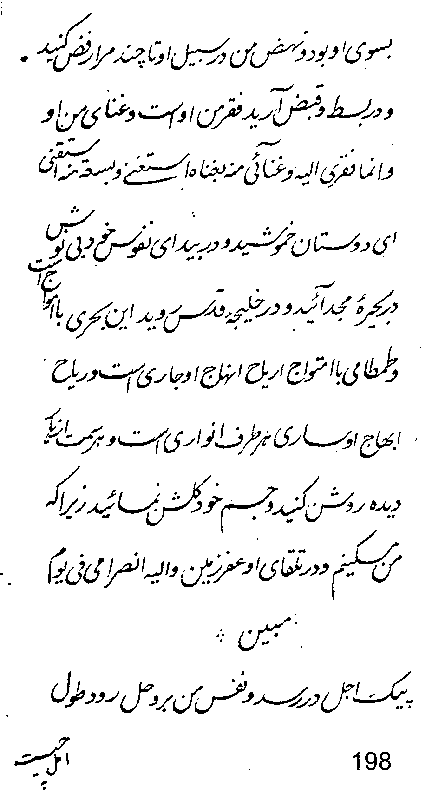 بسوی او بود و نهض من در سبیل او تا چند مرا رفض کنید
و در بسط و قبض آرید فقر من او است و غنای من او
و انما فقری الیه و غنائی منه بغناه استغنی و بسعته استقنی
ای دوستان خموشید و در بیدای نفوس خود بی توش
در بحیرهٔ مجد آئید و در خلیجه قدس روید این بحری با امواج است
و طمطامی با امتواج اریاح ابهاج او جاری است و ریاح
ابهاج او ساری هر طرف انواری است و هر سمت
دیده روشن کنید و جسم خود گلشن نمائید زیرا که
من مسکینم و در تلقای او عفر زمین و الیه انصرامی فی یوم
مبین
پیک اجل در رسد و نفس من بر وحل رود طول
امل چیست
198